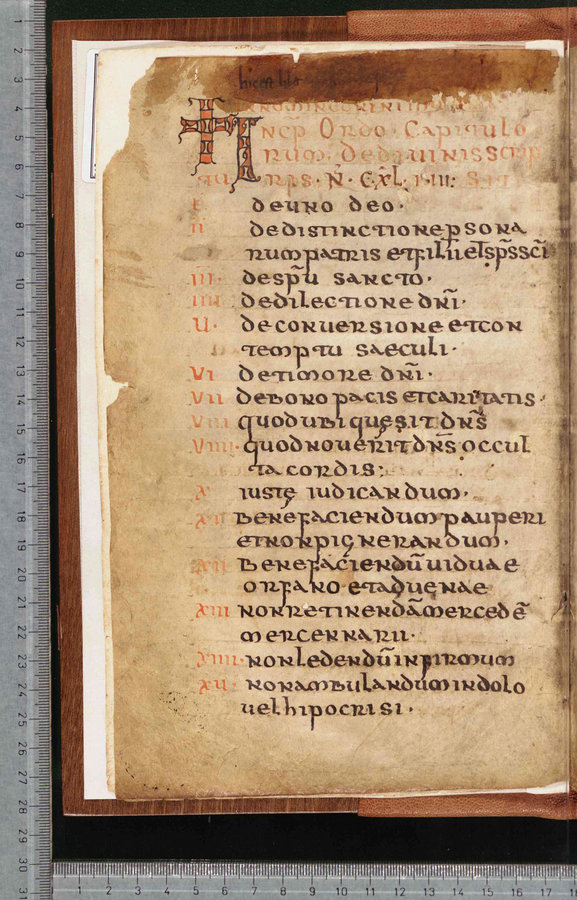 hic est lib
INcp Ordo Capitulo
rum De diuinis scrip
turis · N̄ · CXL · I·III:
I de uno deo ·
II de distinctione persona
rum patris et filii et sp̄s sc̄i
III de sp̄u sancto ·
IIII de dilectione dn̄i ·
U · de conuersione et con
temptu saeculi ·
VI de timore dn̄i ·
VII de bono pacis et caritatis ·
VIII quod ubique sit dn̄s
VIIII · quod nouerit dn̄s occul
ta cordis ;
X iuste iudicandum ·
XI benefaciendum pauperi
et non pignerandum ·
XII Benefaciendū uiduae
orfano et aduenae
XIII non retinendā mercedē
mercennarii ·
XIIII · non ledendū infirmum
XV · non ambulandum in dolo
uel hipocrisi ·